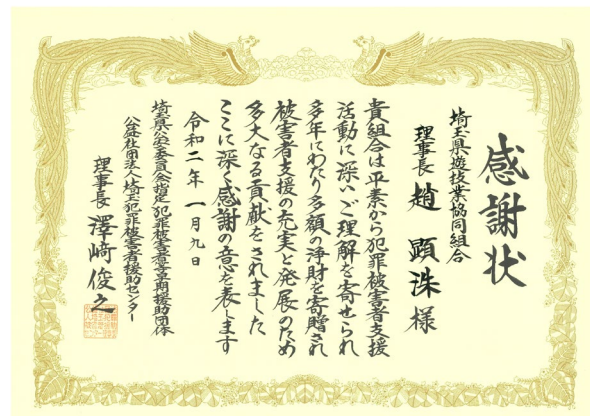 感謝状
埼玉県遊技業協同組合
理事長 趙顕洙様
貴組合は平素から犯罪被害者支援
活動に深いご理解を寄せられ
多年にわたり多額の浄財を寄贈され
被害者支援の充実と発展のため
多大なる貢献をされました
ここに深く感謝の意を表します
令和二年一月九日
埼玉県公安委員会指定犯罪被害者等早期援助団体
公益社団法人埼玉犯罪被害者援助センター
理事長 澤﨑俊之